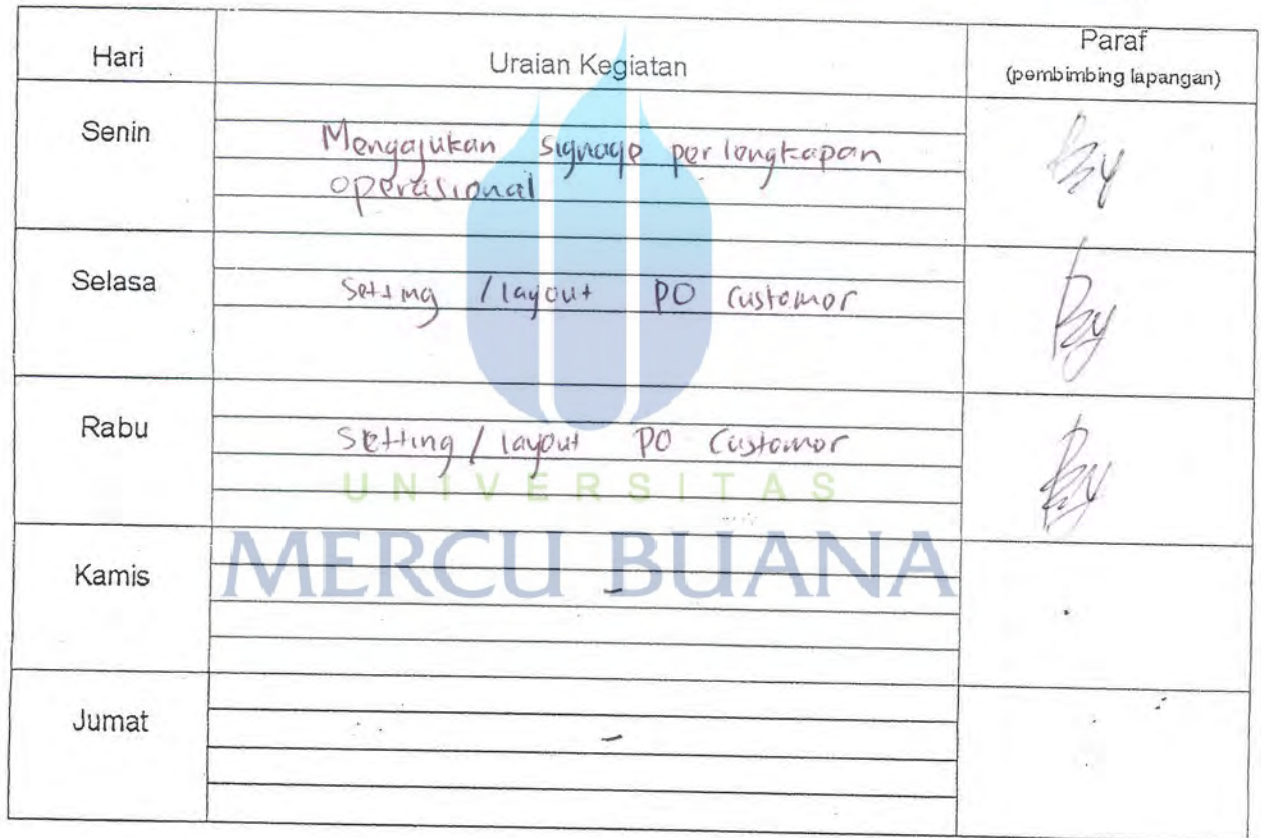 Hari Uraian Kegiatan Paraf
(pembimbing lapangan)
Senin Mengajukan signage perlengkapan
operasional
Selasa Setting / layout PO Customer
Rabu Setting / layout PO Customer
UNIVERSITAS
MERCU BUANA
Kamis -
Jumat -